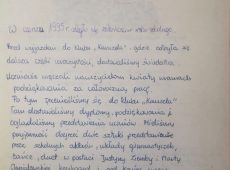 W czerwcu 1995 r. odbyło się zakończenie roku szkolnego.
Przed wyjazdem do klubu „Kaniula", gdzie odbyła się
dalsza część uroczystości, dostaliśmy świadectwa.
Uczniowie wręczyli nauczycielom kwiaty w ramach
podziękowania za całoroczną pracę.
Po tym przenieśliśmy się do klubu „Kaniula"
Tam dostaliśmy dyplomy, podziękowania i
oglądaliśmy przedstawienie uczniów. Mieliśmy
przyjemność obejrzeć dwie sztuki przedstawione
przez szkolnych aktorów, układy gimnastyczne,
tańce, duet w postaci Justyny i Marty